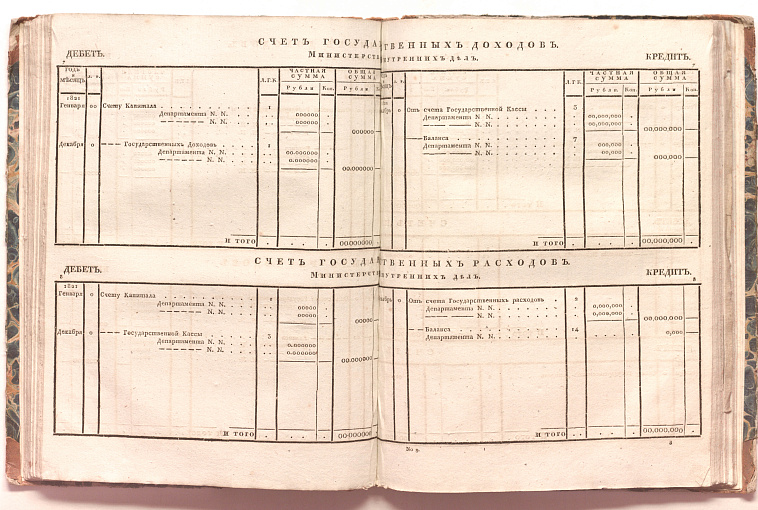 СЧЕТЪ ГОСУДАРСТВЕННЫХЪ ДОХОДОВЪ.
ДЕБЕТЪ. МИНИСТЕРСТВА ВНУТРЕННИХЪ ДѢЛЪ. КРЕДИТЪ.
ГОДЪ и МѢСЯЦЪ Л.Г.К. ЧАСТНАЯ СУММА ОБЩАЯ СУММА
Рубли Коп. Рубли
1821
Генваря 00 Счету Капитала 1
Департамента N. N. 000000
N. N. 000000
000000
Декабря 0 Государственныхъ Доходовъ 1
Департамента N. N. 00.000000
N. N. 0.000000
00.000000
И ТОГО 00000000
Л.Г.К. ЧАСТНАЯ СУММА ОБЩАЯ СУММА
Рубли Коп. Рубли Коп.
0 Отъ счета Государственной Кассы 3
Департамента N. N. 00,000,000
N. N. 00,000,000
00,000,000
Баланса 7
Департамента N. N. 000,000
N. N. 00,000
000,000
И ТОГО 00,000,000
СЧЕТЪ ГОСУДАРСТВЕННЫХЪ РАСХОДОВЪ.
ДЕБЕТЪ. МИНИСТЕРСТВА ВНУТРЕННИХЪ ДѢЛЪ. КРЕДИТЪ.
8 8
1821
Генваря 0 Счету Капитала 1
Департамента N. N. 00000
N. N. 00000
00000
Декабря 0 Государственной Кассы 3
Департамента N. N. 0.000000
N. N. 0.000000
00.000000
И ТОГО 00.000000
0 Отъ счета Государственныхъ расходовъ 2
Департамента N. N. 0,000,000
N. N. 0,000,000
00,000,000
Баланса 14 0,000
Департамента N. N.
И ТОГО 00,000,000
8